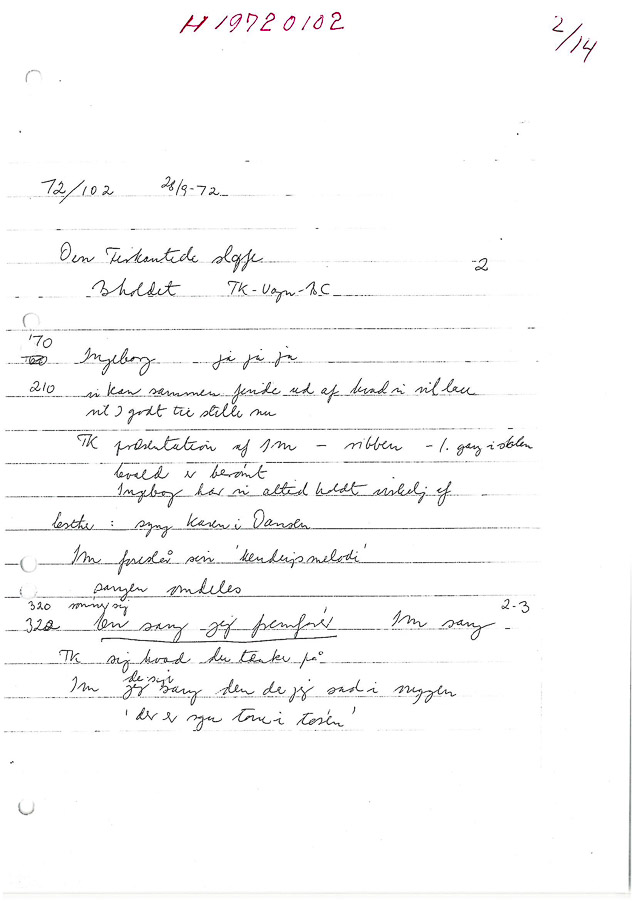 H 19720102
2/14
72/102 28/9-72
Den Firkantede sløjfe -2
B holdet TK-Vagn-BC
'70
Ingeborg ja ja ja
210 vi kan sammen finde ud af hvad vi vil lave
vil I godt tie stille nu
TK præsentation af Im - ribben - 1. gang i skolen
hvad er berømt
Ingeborg har vi altid holdt af
: syng Karen i Dansen
Im foreslår sin 'kendingsmelodi'
sangen omdeles
320 2-3
322 en sang jeg fremfører Im sang
TK sig hvad du tænker på
Im de jeg sang den de jeg sad i
' der er syn tone i '